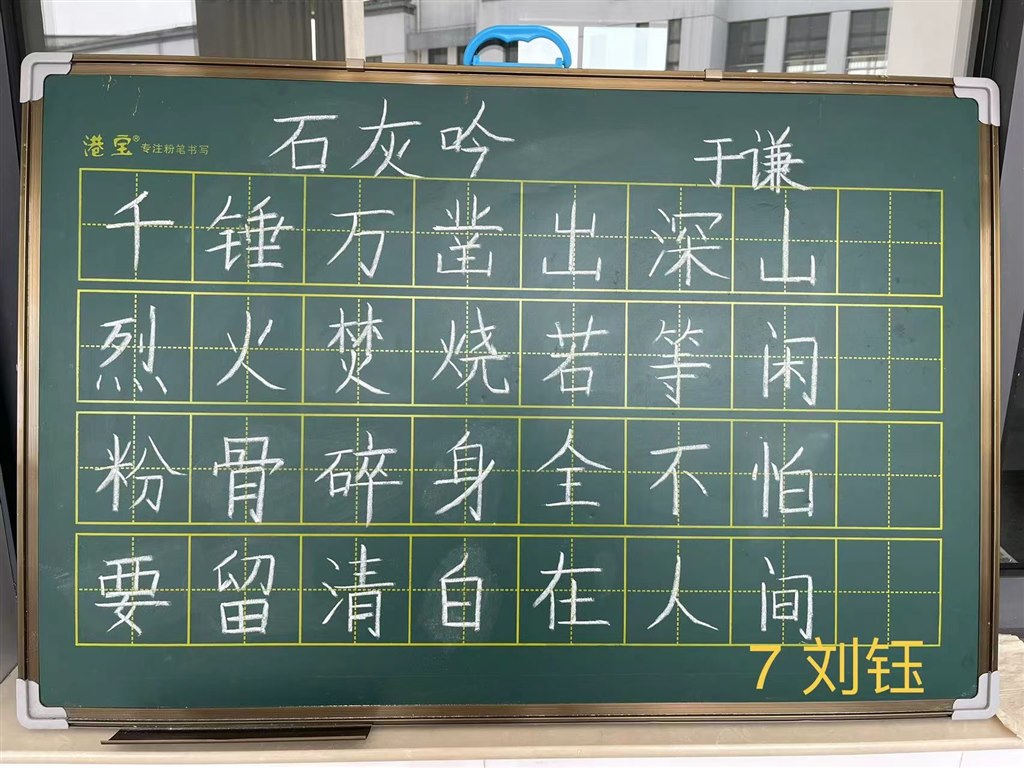 石灰吟 于谦
港宝® 专注粉笔书写
千锤万凿出深山
烈火焚烧若等闲
粉骨碎身全不怕
要留清白在人间
7 刘钰